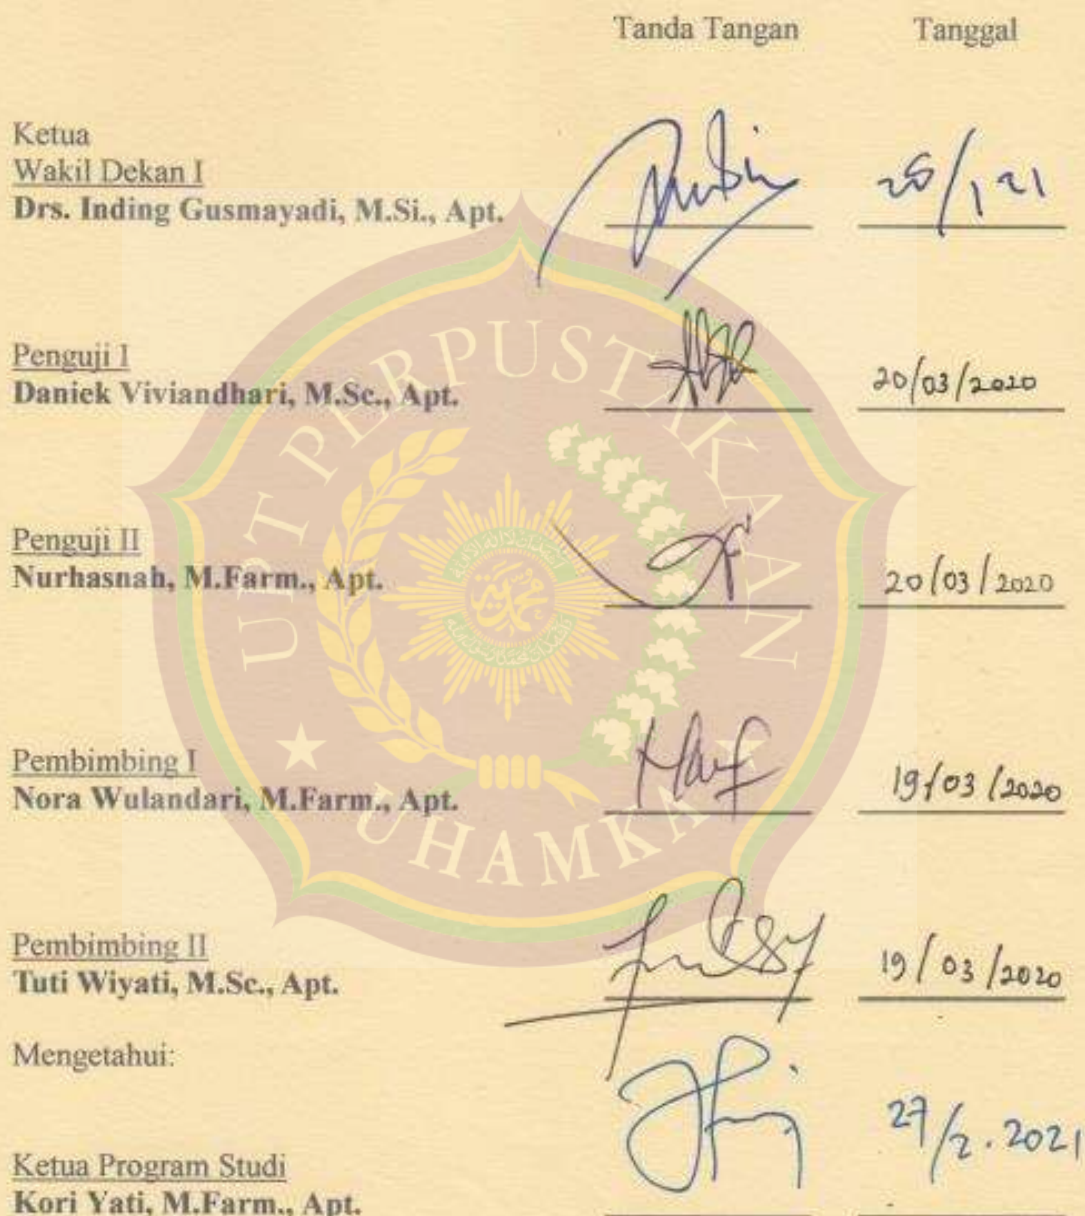 Tanda Tangan Tanggal
Ketua
Wakil Dekan I
Drs. Inding Gusmayadi, M.Si., Apt.
Penguji I
Daniek Viviandhari, M.Sc., Apt. 20/03/2020
Penguji II
Nurhasnah, M.Farm., Apt. 20/03/2020
Pembimbing I
Nora Wulandari, M.Farm., Apt. 19/03/2020
Pembimbing II
Tuti Wiyati, M.Sc., Apt. 19/03/2020
Mengetahui:
27/2.2021
Ketua Program Studi
Kori Yati, M.Farm., Apt.
UPT PERPUSTAKAAN
UHAMKA